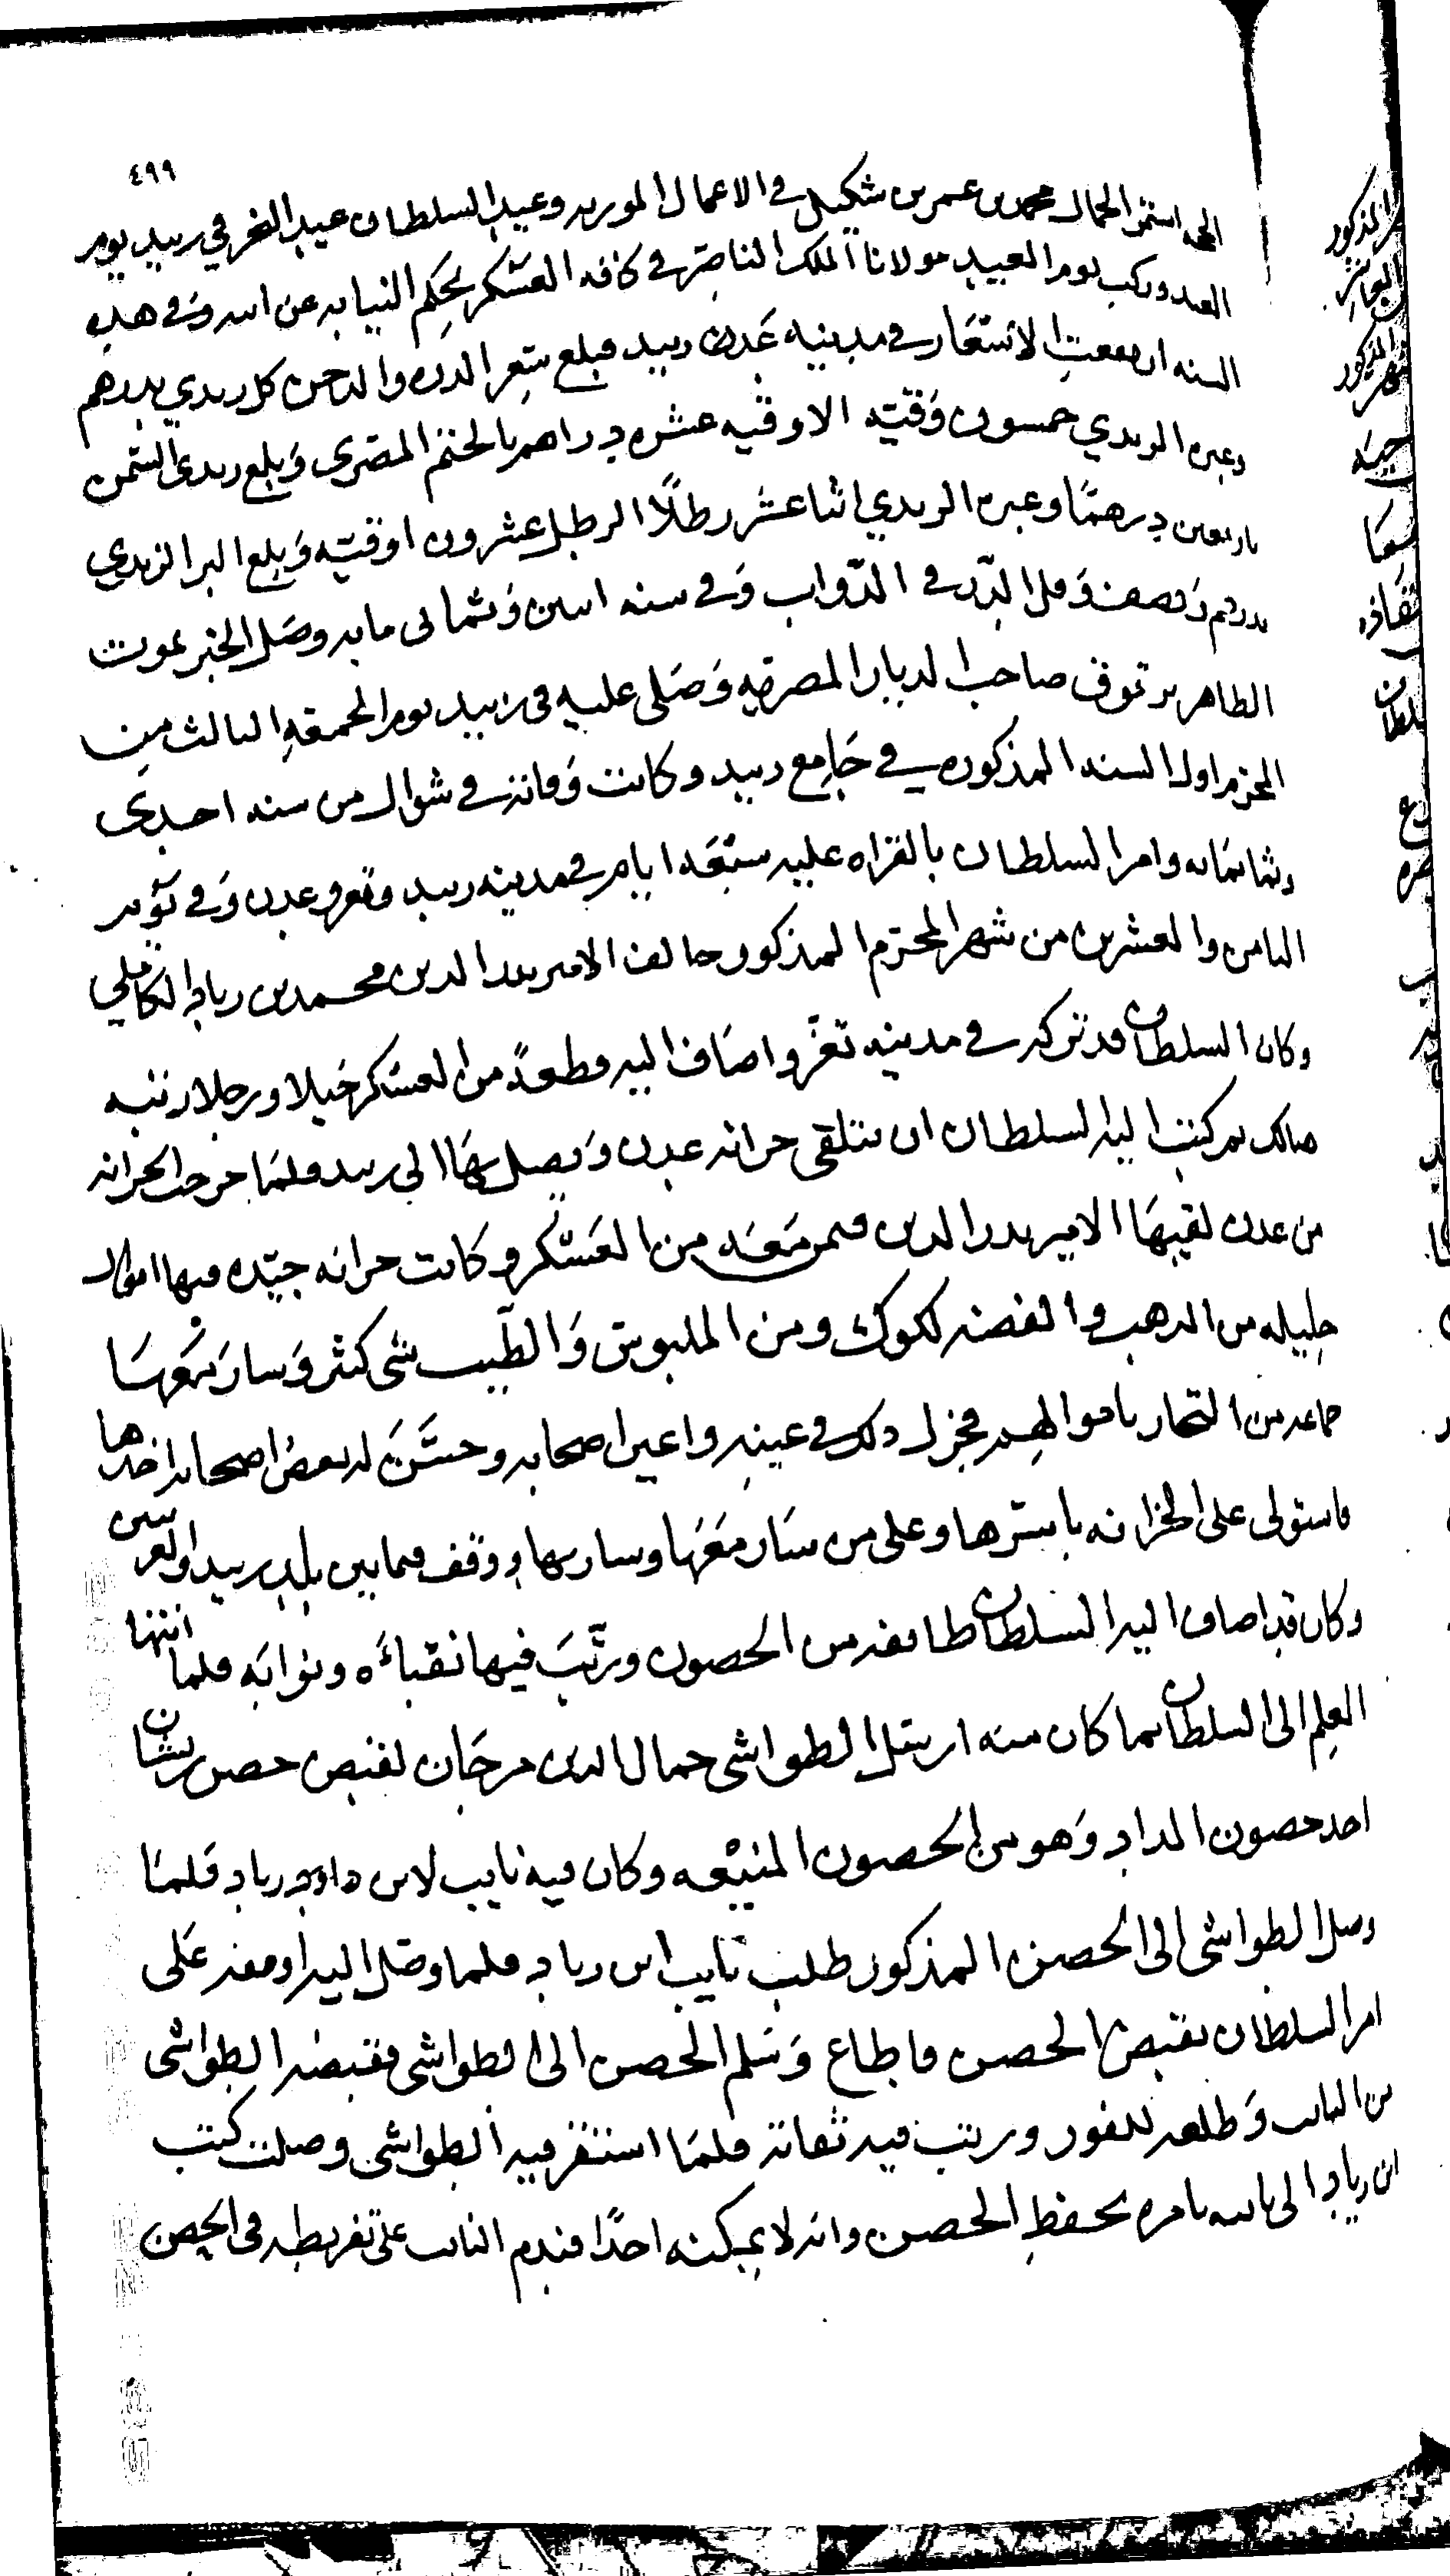 ٤٩٩
الحجه استمر الجمال محمد بن عمر بن شكيل في الاعمال الموريه وعيد السلطان عيد النحر في زبيد يوم
العيد وركب يوم العييد مولانا الملك الناصر في كافه العسكر بحكم النيابه عن ابيه وفي هذه
السنه ارتفعت الاسعار في مدينه عدن وزبيد فبلغ سعر الذره والدخن كل زبدي بدرهم
وعبره الزبدي خمسون وقيّه الاوقيه عشره دراهم بالختم المصرى وبلغ زبدي السمن
باربعين درهمًا وعبره الزبدي اثنا عشر رطلًا الرطل عشرون اوقيّه وبلغ البر الزبدي
بدرهم ونصف وقل الدّر في الدّواب وفي سنه اثنين وثماني مايه وصل الخبر بموت
الظاهر برقوق صاحب الديار المصريه وصلى عليه في زبيد يوم الجمعه الثالث من
المحرم اول السنه المذكوره في جامع زبيد وكانت وفاته في شوال من سنه احدى
وثمانمايه وامر السلطان بالقراه عليه سبعه ايام في مدينه زبيد وتعز وعدن وفي يوم
الثامن والعشرين من شهر المحرم المذكور خالف الامير بدر الدين محمد بن زياد الكاملي
وكان السلطان قد تركه في مدينه تعز واضاف اليه قطعةً من العسكر خيلا ورجلا رتبه
هنالك ثم كتب اليه السلطان ان يتلقى خزانه عدن ويصل بها الى زبيد فلما خرجت الخزانه
من عدن لقيها الامير بدر الدين فيمن معه من العسكر وكانت خزانه جيّده فيها اموال
جليله من الذهب والفضه لكوك ومن الملبوس والطّيب شي كثير وسار معها
جماعه من التجار باموالهم فجزل ذلك في عينه واعين اصحابه وحسّن له بعض اصحابه اخذها
فاستولى على الخزانه باسرها وعلى من سار معها وسار بها ووقف فيما بين بلد زبيد
وكان قد اضاف اليه السلطان طايفه من الحصون ورتّب فيها نقباءه ونوابه فلما انتها
العلم الى السلطان بما كان منه ارسل الطواشي جمال الدين مرجان لقبض حصن ريشان
احد حصون المداد وهو من الحصون المنيعه وكان فيه نايب لابن زياد فلما
وصل الطواشي الى الحصن المذكور طلب نايب ابن زياد فلما وصل اليه اوقفه على
امر السلطان بقبض الحصن فاطاع وسلم الحصن الى الطواشي فقبضه الطواشي
من النايب وطلعه للفور ورتب فيه ثقاته فلما استقر فيه الطواشي وصلت كتب
ابن زياد الى نايبه يامره بحفظ الحصن وانه لا يمكنه احدًا فندم النايب على تفريطه في الحصن